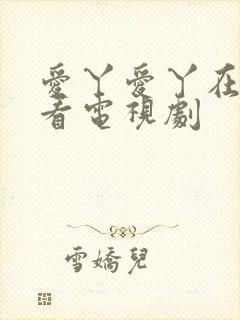 愛丫愛丫在
看電視劇
雪嬌兒